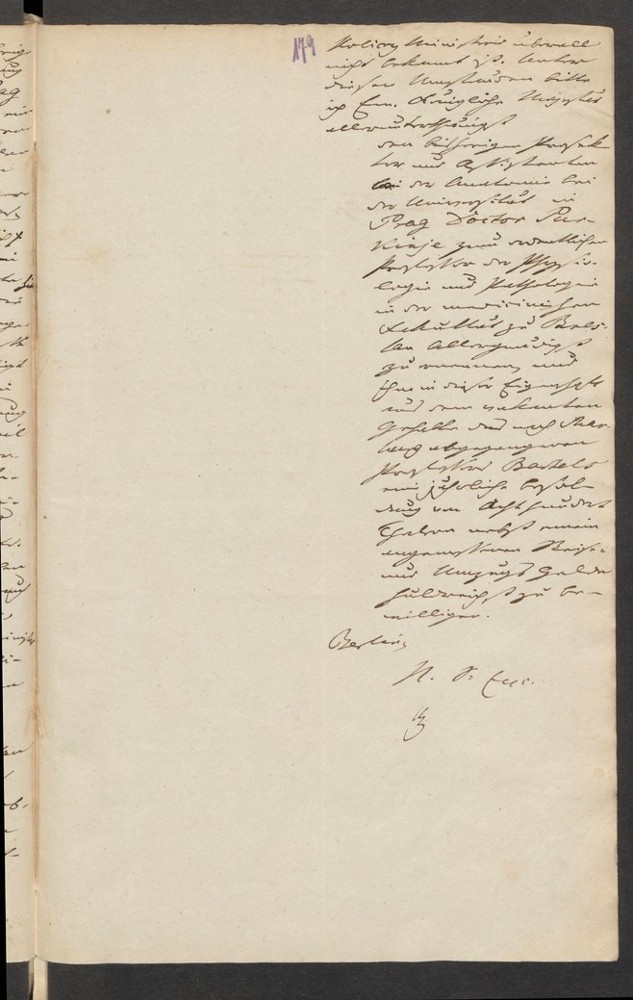 179
Policey Ministerio überall
nicht bekannt ist. Unter
diesen Umständen bitte
ich Ew. Königliche Majestät
allerunterthänigst
den bisherigen Prosek-
tor und Assistenten
bei der Anatomie bei
der Universität in
Prag Doctor Pur-
kinje zum ordentlichen
Professor der Physio-
logie und Pathologie
in der medicinischen
Fakultät zu Bres-
lau allergnädigst
zu ernennen, und
ihm in dieser Eigenschaft
aus dem vakanten
Gehalte des nach Mar-
burg abgegangenen
Professors Bartels
eine jährliche Besol-
dung von Achthundert
Thalern nebst einem
angemessenen Reise-
und Umzugs Gelde
huldreichst zu be-
willigen.
Berlin,
N. S. Exc.